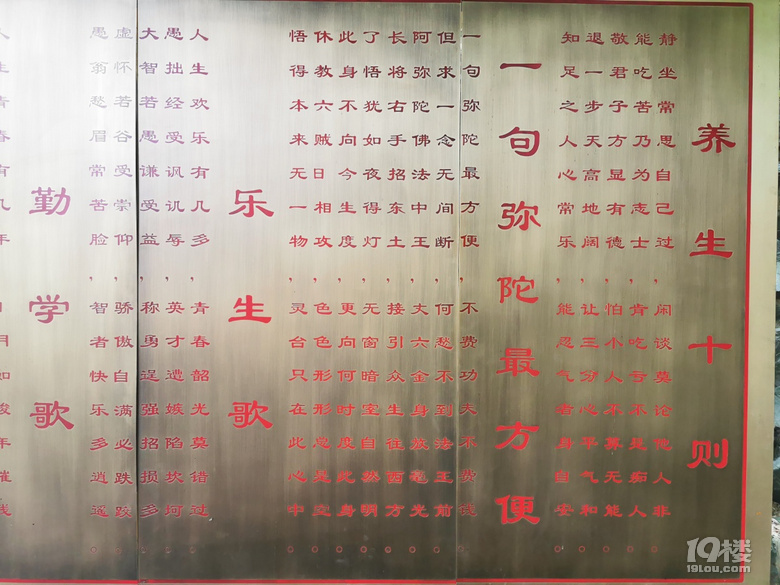 养生十则
静坐常思自己过，闲谈莫论他人非。
能吃苦乃为志士，肯吃亏不是痴人。
敬君子方显有德，怕小人不算无能。
退一步天高地阔，让三分心平气和。
知足之人心常乐，能忍气者身自安。
一句弥陀最方便
一句弥陀最方便，不费功夫不费钱。
但求一念无间断，何愁不到法王前。
阿弥陀佛法中王，丈六金身放毫光。
长将右手招东土，接引众生往西方。
了悟犹如夜得灯，无窗暗室自然明。
此身不向今生度，更向何时度此身。
休教六贼日相攻，色色形形总是空。
悟得本来无一物，灵台只在此心中。
乐生歌
人生欢乐有几多，青春韶光莫错过。
愚拙经受讽讥辱，英才遭嫉陷坎坷。
大智若愚谦受益，称勇逞强招损多。
虚怀若谷受崇仰，骄傲自满必跌跤。
愚翁愁眉常苦脸，智者快乐多逍遥。
勤学歌
人生青春有几年，日月如梭年催
19楼
19lou.com